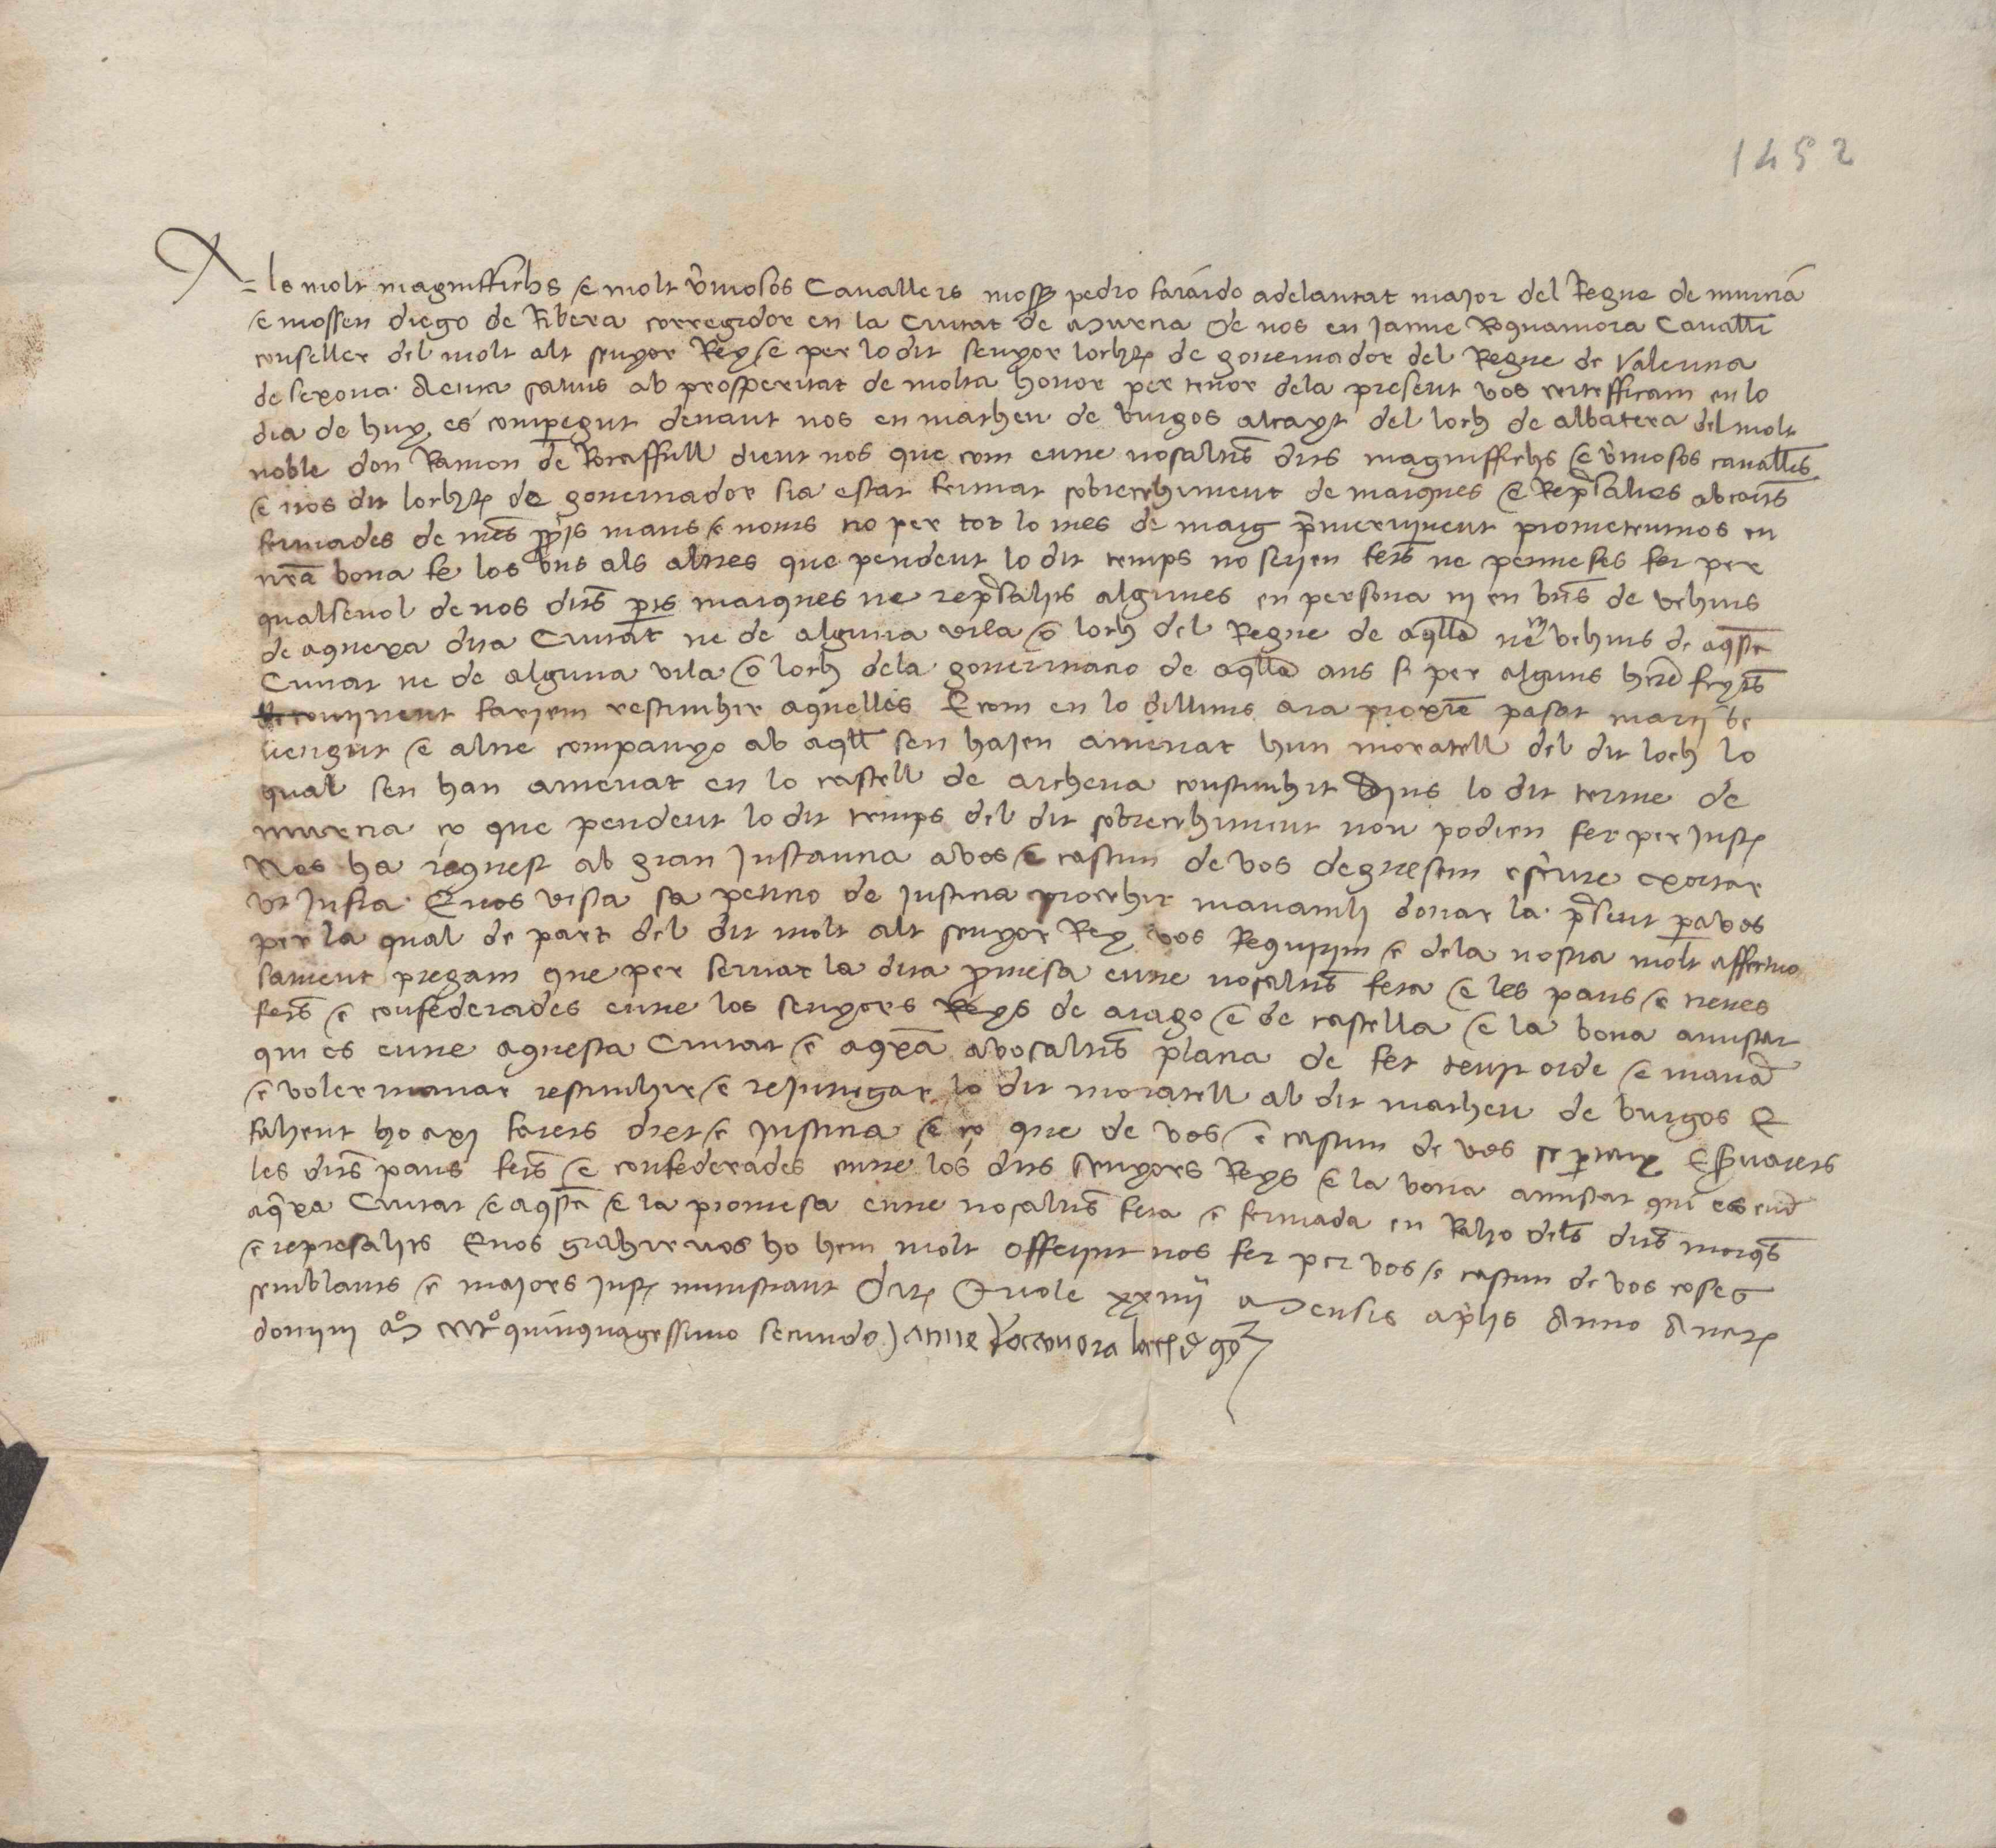 1452
Als molt magniffichs e molt vtuosos Cavallers moss pedro faiardo adelantat major del Regne de murcia
e mossen diego de Ribera corregidor en la Ciutat de Murcia De nos en Jacme Roquamora Cavaller
conseller del molt alt senyor Rey e per lo dit senyor lochtt de governador del Regne de Valencia
de sexona saluts ab prosperitat de molta honor per tenor dela present vos certefficam en lo
dia de huy es comperegut denant nos en matheu de burgos alcayt del loch de albatera del molt
noble don Ramon de Rocaffull dient nos que com entre nosaltres dits magniffichs e vtuosos cavallers
e nos dit lochtt de governador sia estat fermat sobrecehiment de marques e Represalies ab cartes
fermades de nres ppies mans e noms no per tot lo mes de maig primervinent prometentnos en
nra bona fe los uns als altres que pendent lo dit temps no serien fetes ne permeses fer per
qualsevol de nos dites parts marques ne represalies algunes en persona ni en bens de vehins
de aquexa dita Ciutat ne de alguna vila o loch del Regne de aqlla ne en vehins de aqsta
Ciutat ne de alguna vila o loch dela governacio de aqlla ans si per alguns seria fet
continent fariem restituhir aquelles E com en lo dilluns ara proxime pasat marti be
vengut e altre companyo ab aqll sen hajen amenat hun moratell del dit loch lo
qual sen han amenat en lo castell de archena constituhit dins lo dit terme de
murcia ço que pendent lo dit temps del dit sobrecehiment non podien fer per just
Nos ha request ab gran Justancia a vos e cascun de vos deguessem escriure exortar
ut Justa E nos vista sa peticio de justicia procehir manam li donar la present per a vos
per la qual de part del dit molt alt senyor Rey vos Requirim e dela nostra molt affectuo
sament pregam que per servar la dita promesa entre nosaltres feta e les paus e treves
fetes e confederades entre los senyors Reys de arago e de castella e la bona amistat
qui es entre aquesta Ciutat e aqxa a vosaltres placia de fer tenir orde e manar
e voler manar restituhir e rejutegar lo dit moratell al dit matheu de burgos E
fahent ho axi fareis dret e justicia e ço que de vos e cascun de vos se pertany E servareis
les dites paus fetes e confederades entre los dits senyors Reys e la bona amistat qui es entre
aqxa Ciutat e aqsta e la promesa entre nosaltres feta e fermada en Raho deles dites marqs
e represalies E nos grahirvos ho hem molt offerint nos fer per vos e cascun de vos coses
semblants e majors just ministrant Dat Oriole xxiiii Mensis aplis Anno A nat
domini Mo CCCCo quinquagessimo secundo Jacme Rocamora loctt de gor